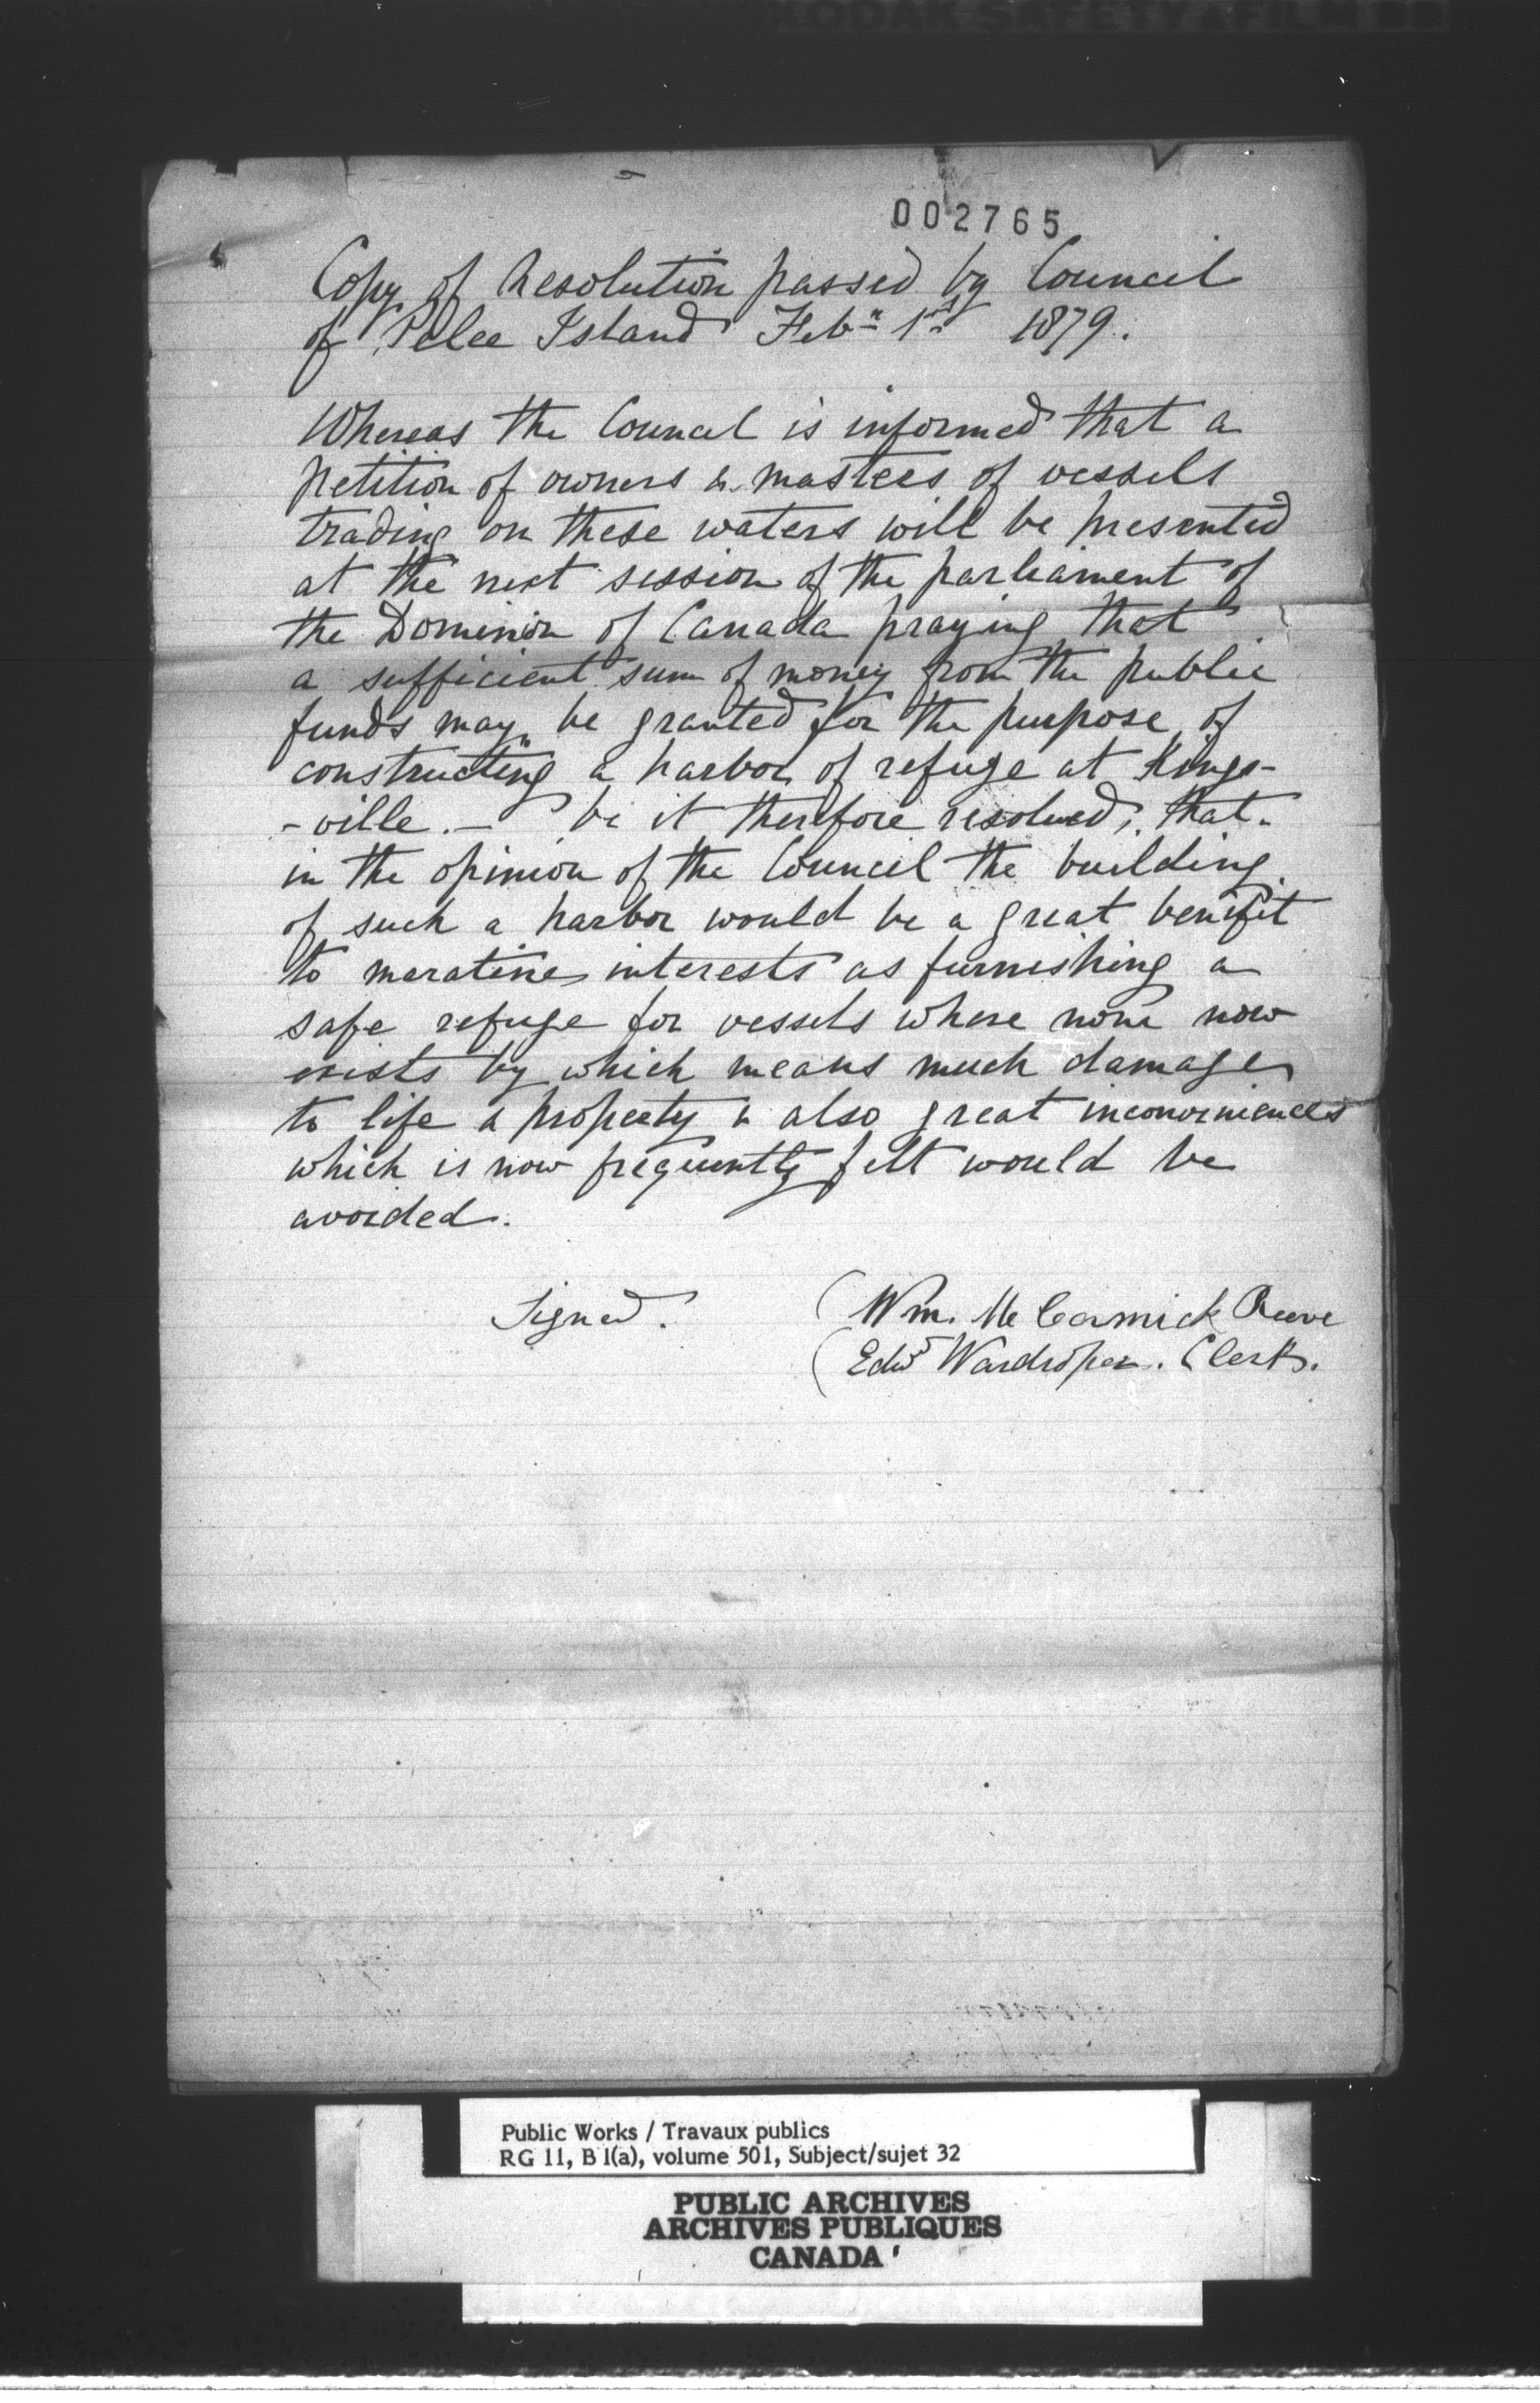 KODAK SAFETY FILM
002765
Copy of Resolution passed by Council
of Pelee Island Feby 1st 1879.
Whereas the Council is informed that a
petition of owners & masters of vessels
trading on these waters will be presented
at the next session of the parliament of
the Dominion of Canada praying that
a sufficient sum of money from the public
funds may be granted for the purpose of
constructing a harbor of refuge at Kings-
-ville. - be it therefore resolved, that
in the opinion of the Council the building
of such a harbor would be a great benifit
to maratine interests as furnishing a
safe refuge for vessels where none now
exists by which means much damage
to life & property & also great inconveniences
which is now frequently felt would be
avoided.
Signed. (Wm. McCormick Reeve
(Edwd Wardroper. Clerk.
Public Works / Travaux publics
RG 11, B 1(a), volume 501, Subject/sujet 32
PUBLIC ARCHIVES
ARCHIVES PUBLIQUES
CANADA